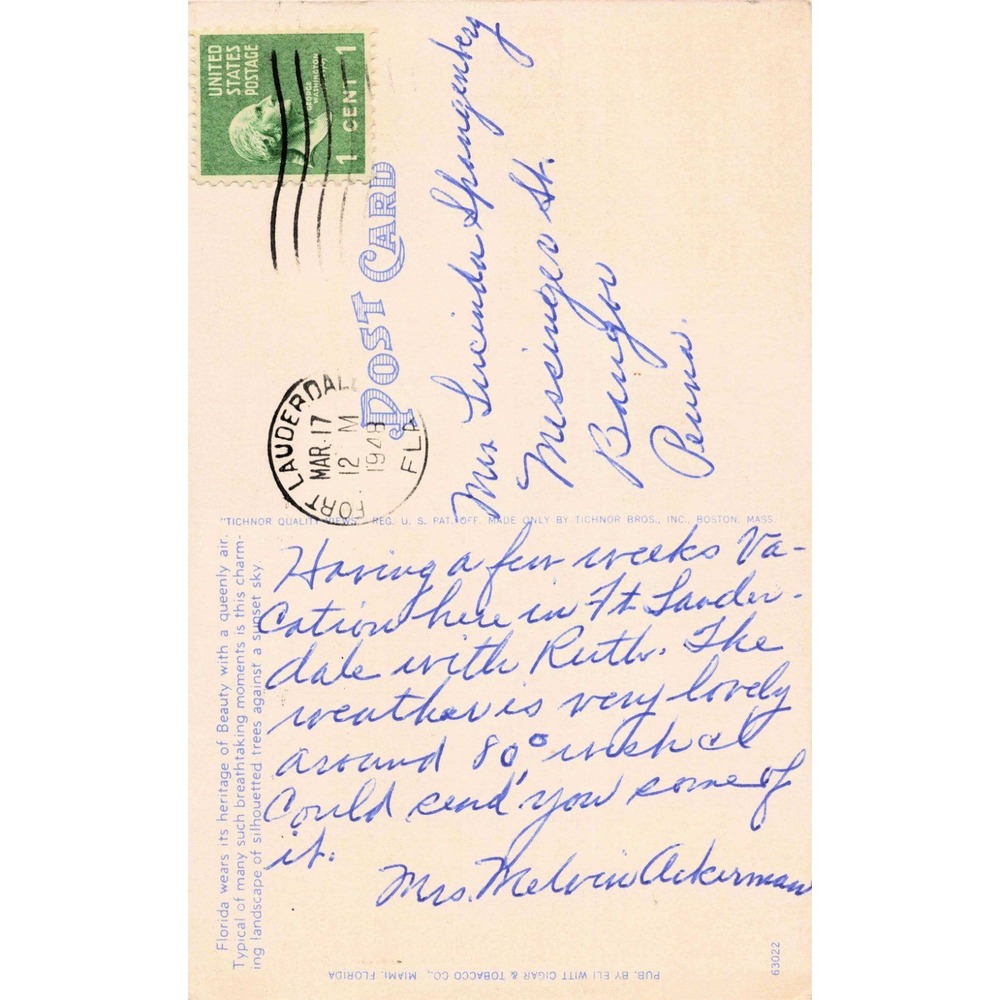 UNITED
STATES
POSTAGE
GEORGE
WASHINGTON
1 CENT 1
POST CARD
FORT LAUDERDALE
MAR 17
12 M
1948
FLA
Mrs Lucinda Spangenberg
Messinger St.
Bangor
Penna.
"TICHNOR QUALITY VIEWS," REG. U. S. PAT. OFF. MADE ONLY BY TICHNOR BROS., INC., BOSTON, MASS.
Florida wears its heritage of Beauty with a queenly air.
Typical of many such breathtaking moments is this charm-
ing landscape of silhouetted trees against a sunset sky.
Having a few weeks Va-
cation here in Ft Lauder-
dale with Ruth. The
weather is very lovely
around 80° wish I
Could send you some of
it.
Mrs. Melvin Ackerman
PUB. BY ELI WITT CIGAR & TOBACCO CO., MIAMI, FLORIDA
63022